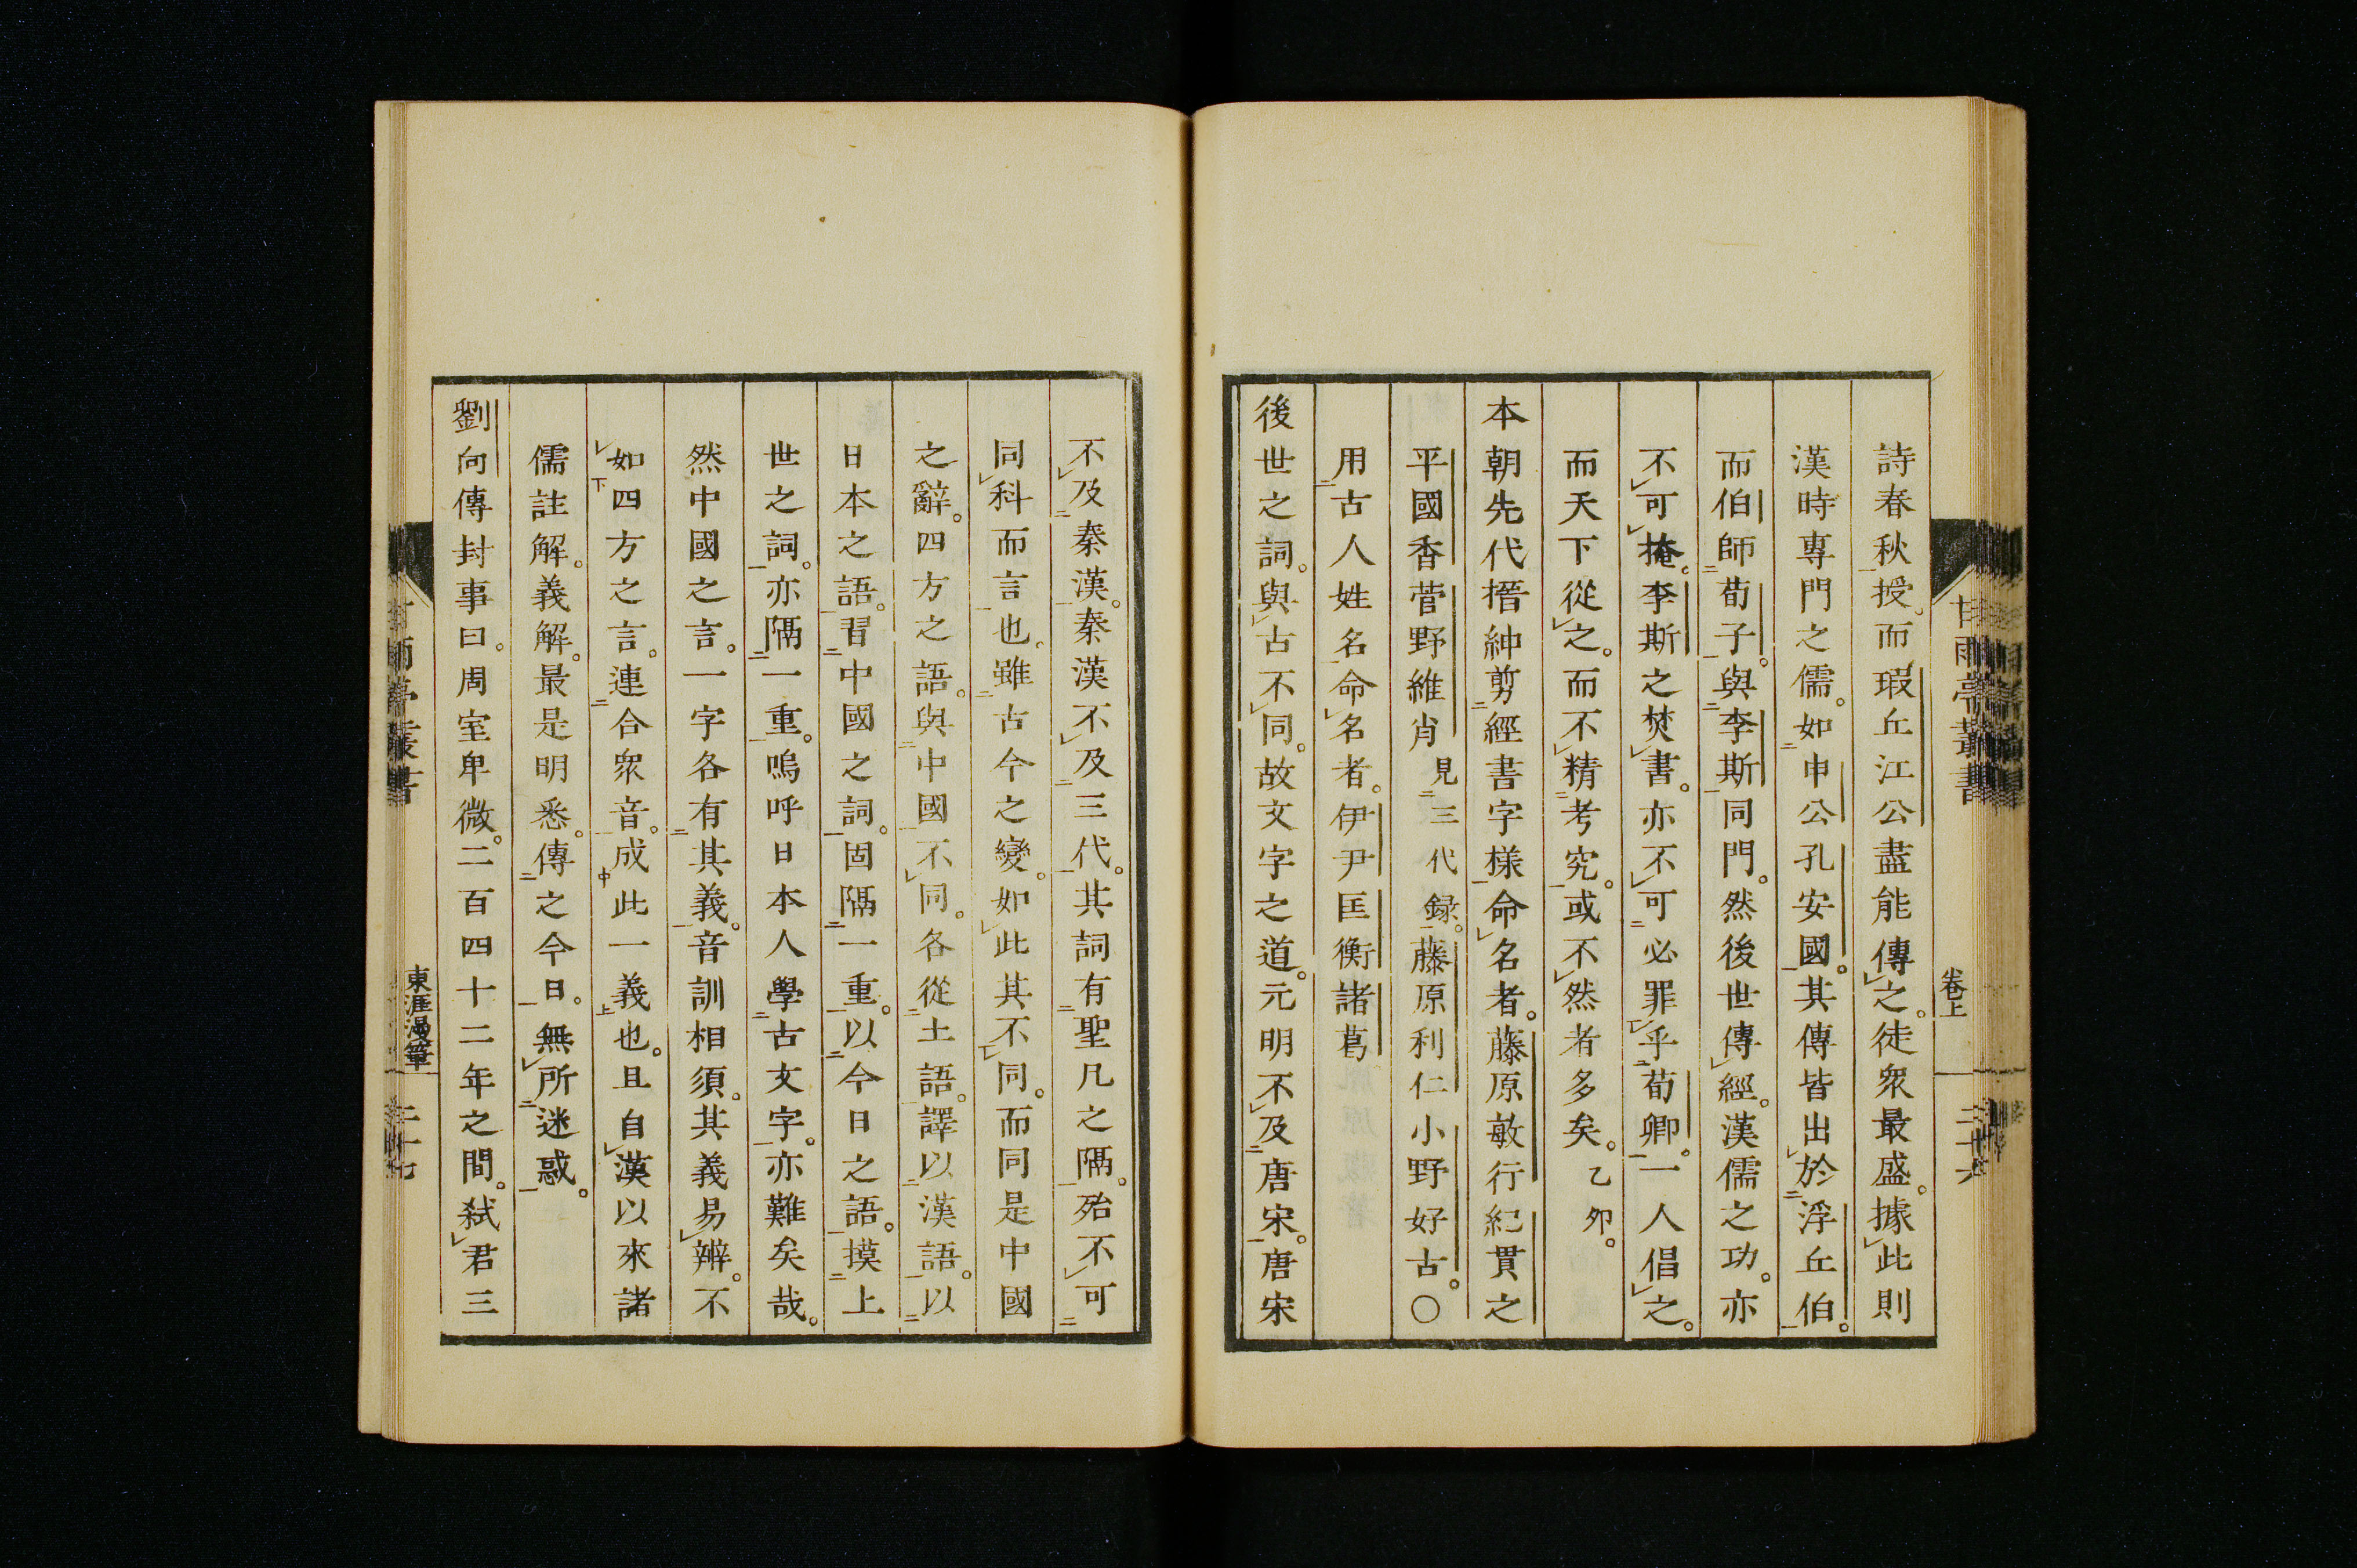 詩春秋授。而瑕丘江公盡能傳之。徒衆最盛。據此則
漢時專門之儒。如申公孔安國。其傳皆出於浮丘伯。
而伯師荀子。與李斯同門。然後世傳經。漢儒之功。亦
不可掩。李斯之焚書。亦不可必罪乎荀卿。一人倡之。
而天下從之。而不精考究。或不然者多矣。乙夘。
本朝先代搢紳剪經書字様命名者。藤原敏行紀貫之
平國香菅野維肖見三代録。藤原利仁小野好古。〇
用古人姓名命名者。伊尹匡衡諸葛
後世之詞。與古不同。故文字之道。元明不及唐宋。唐宋
卷上
不及秦漢。秦漢不及三代。其詞有聖凡之隔。殆不可
同科而言也。雖古今之變。如此其不同。而同是中國
之辭。四方之語。與中國不同。各從土語。譯以漢語。以
日本之語。習中國之詞。固隔一重。以今日之語。摸上
世之詞。亦隔一重。嗚呼日本人學古文字。亦難矣哉。
然中國之言。一字各有其義。音訓相須。其義易辨。不
如四方之言。連合衆音。成此一義也。且自漢以來諸
儒註解。義解。最是明悉。傳之今日。無所迷惑。
劉向傳封事曰。周室卑微。二百四十二年之間。弑君三
東涯漫筆